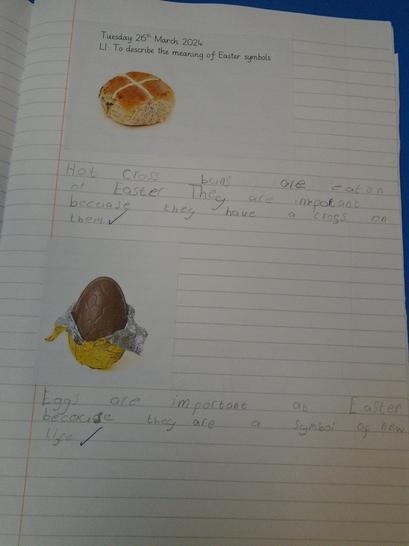 Tuesday 26th March 2024
LI: To describe the meaning of Easter symbols
Hot Cross buns are eaten
at Easter They are important
becuase they have a cross on
them
Eggs are important at Easter
because they are a symbol of new
life